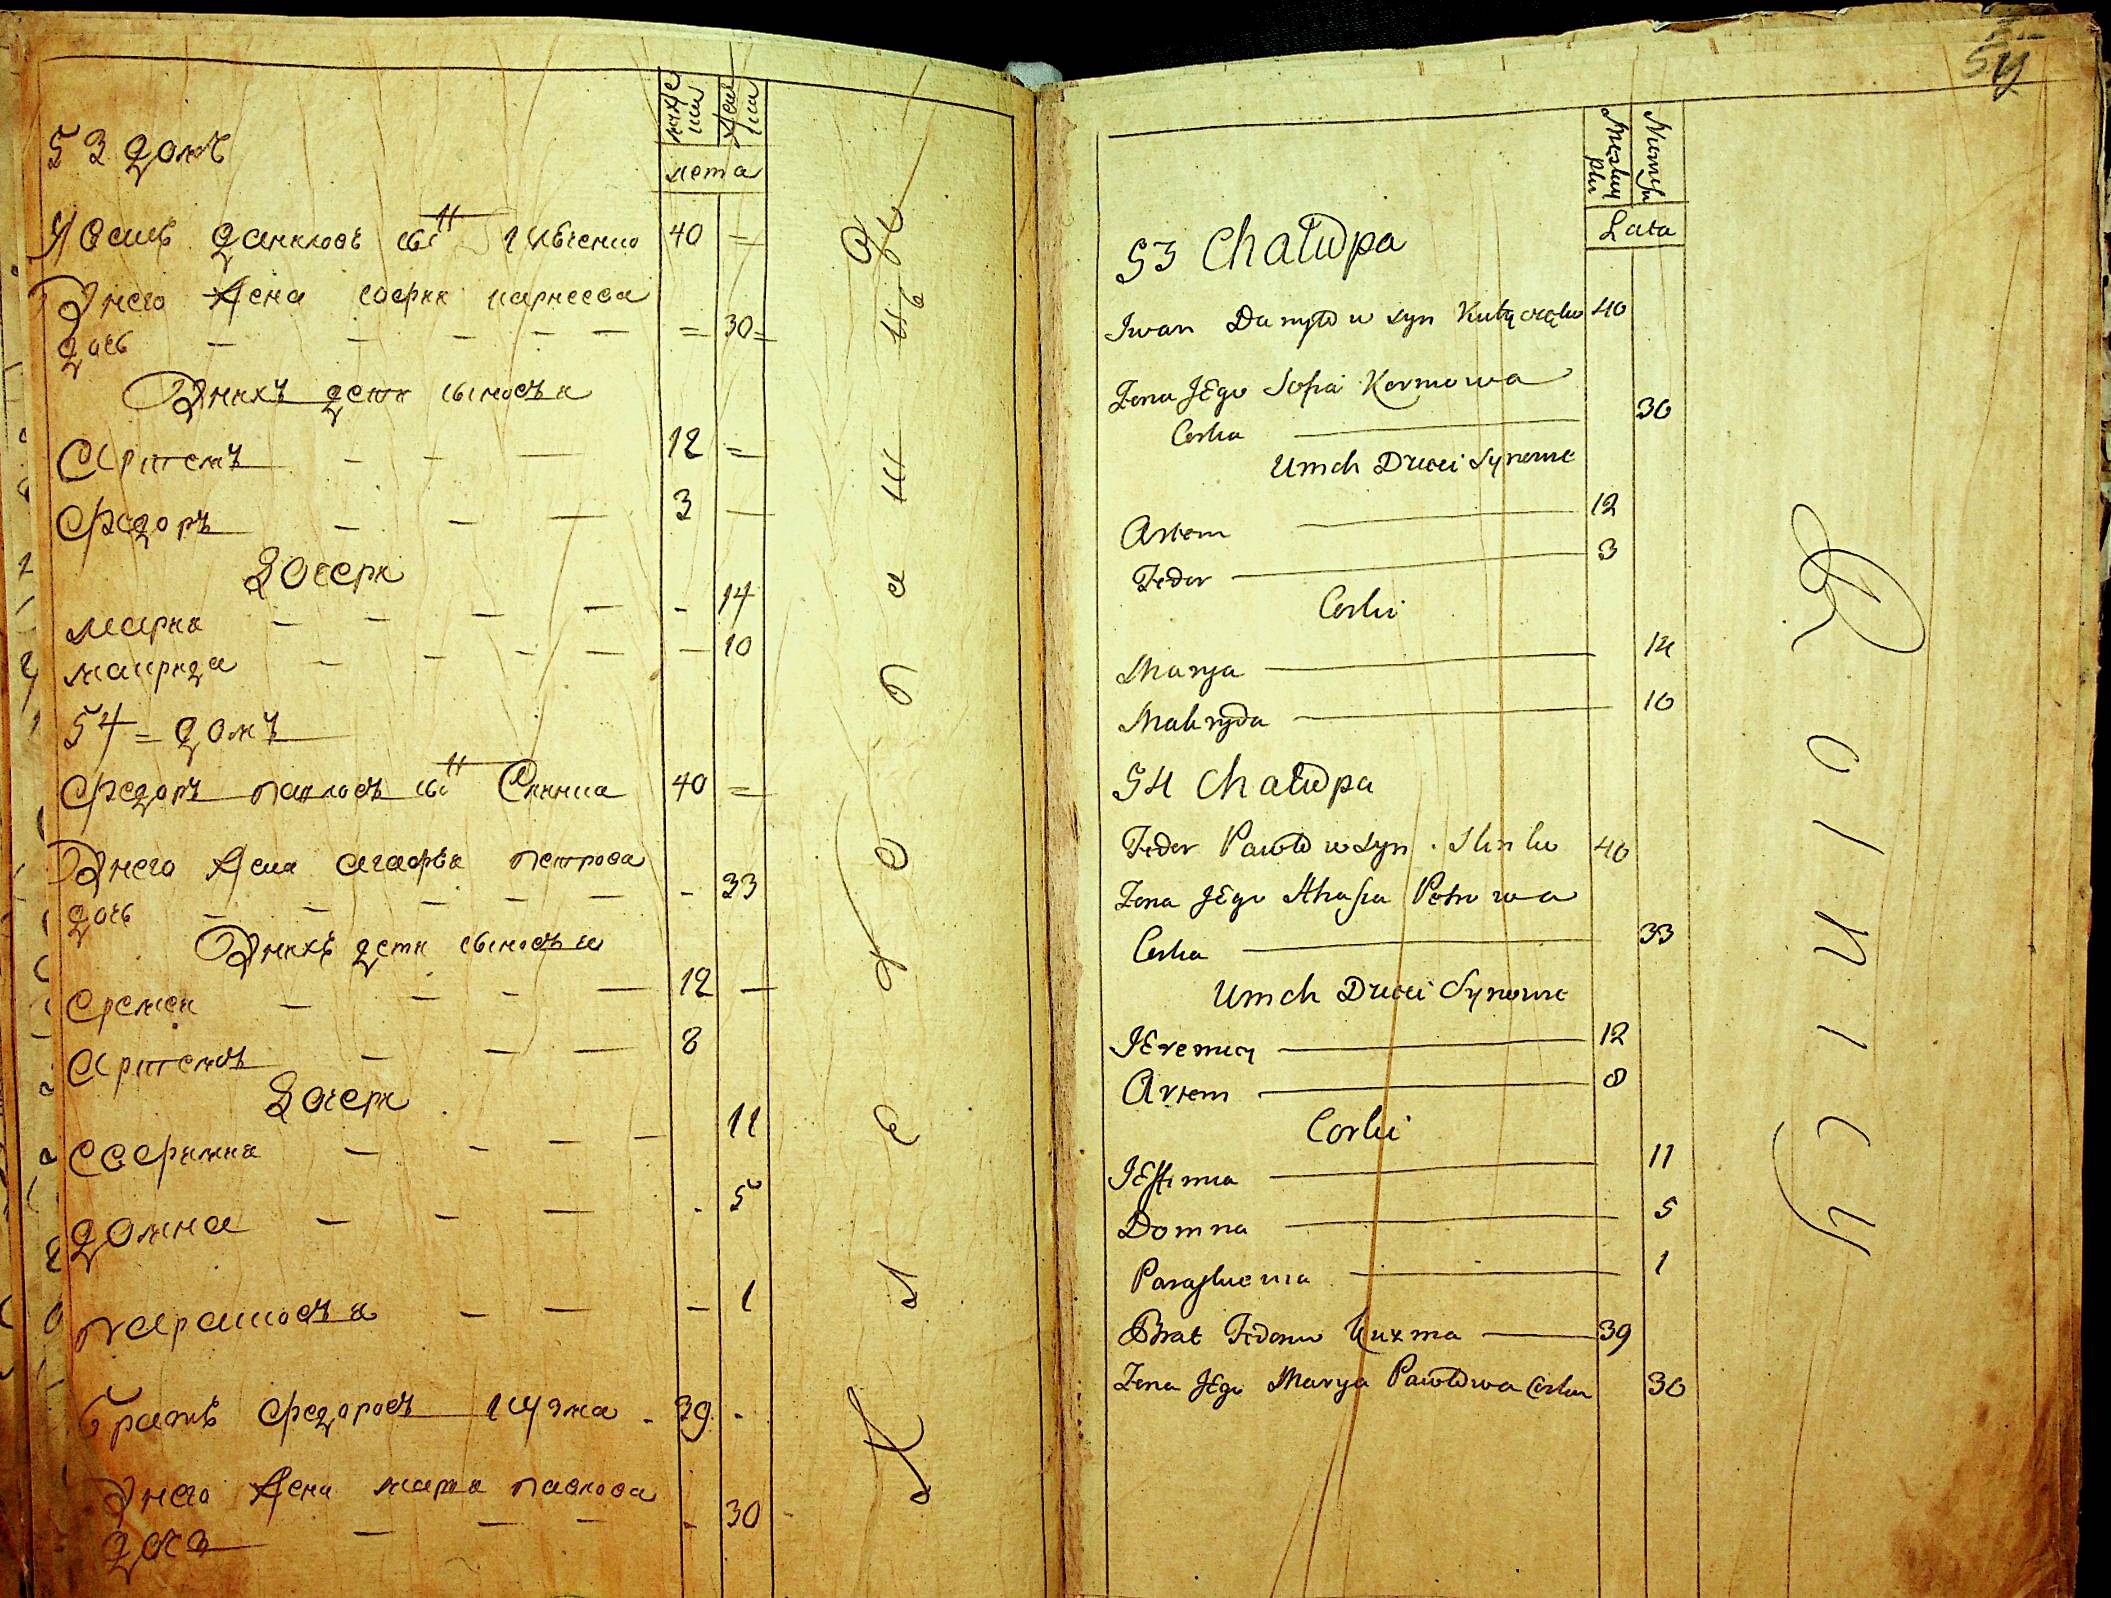 мужс
ши
жен
ши
лета
53 домъ
Иванъ даниловъ сы͞нъ 40 =
Внего жена софия
дочь — — — — — = 30 =
Внихъ дети сыновья
Артемъ — — — 12 =
Федоръ — — — 3 —
Дочери
мария — — — — - 14
маврида — — — — — 10
54 = домъ
Федоръ павловъ сы͞нъ 40 =
Внего жена агафья петрова
дочь — — — — — - 33
Внихъ дети сыновья
Еремей — — — — 12 —
Артемъ — — — 8
Дочери
Еефимия — — — — 11
домна — — — . 5
парасковья — — — 1
братъ федоровъ кузма - 39 .
Внего жена мария павлова
дочь — — — — . 30
Крестьяне
54
Męskiey
płci
Niewieś
Lata
53 Chałupa
Iwan Danyłow syn 40
Żena JEgo Sofia
Corka — 30
Umch Dzieci Synowie
Artem — 12
Fedor — 3
Corki
Marya — 14
Makryda — 10
54 Chałupa
Fedor Pawłow syn 40
Żena JEgo Ahafia Petrowa
Corka — 33
Umch Dzieci Synowie
JEremiy — 12
Artem — 8
Corki
JEftimia — 11
Domna — 5
Paraskiewia — 1
Brat Fedora Kuzma — 39
Żena JEgo Marya Pawłowa Corka 30
Rolnicy